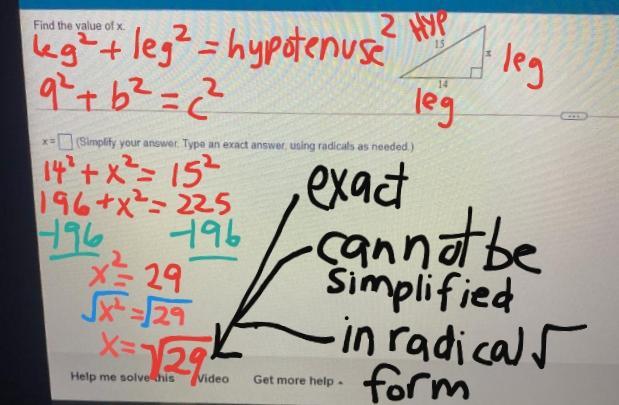 Find the value of x.
leg² + leg² = hypotenuse²
a² + b² = c²
HYP
15
x
leg
14
leg
x = (Simplify your answer. Type an exact answer, using radicals as needed.)
14² + x² = 15²
196 + x² = 225
-196 -196
x² = 29
√x² = √29
x = √29
exact
cannot be
simplified
in radical √
form
Help me solve this Video Get more help